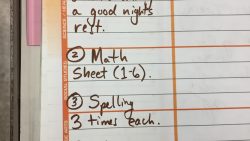 a good nights
rest.
② Math
Sheet (1-6).
③ Spelling
3 times each.